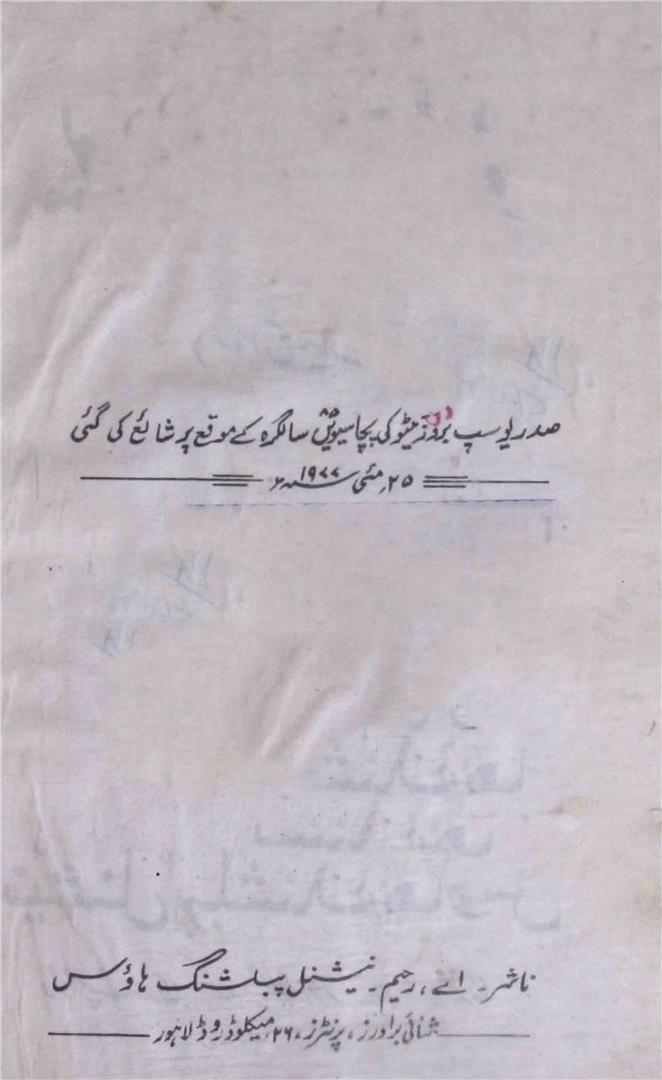 صدر یوسپ بروز ٹیٹو کی پچاسیویں سالگرہ کے موقع پر شائع کی گئی
۲۵ مئی ۱۹۷۷ء
ناشر۔ اے، رحیم۔ نیشنل پبلشنگ ہاؤس
ثنائی برادرز، پرنٹرز، ۲۶، میکلوڈ روڈ لاہور